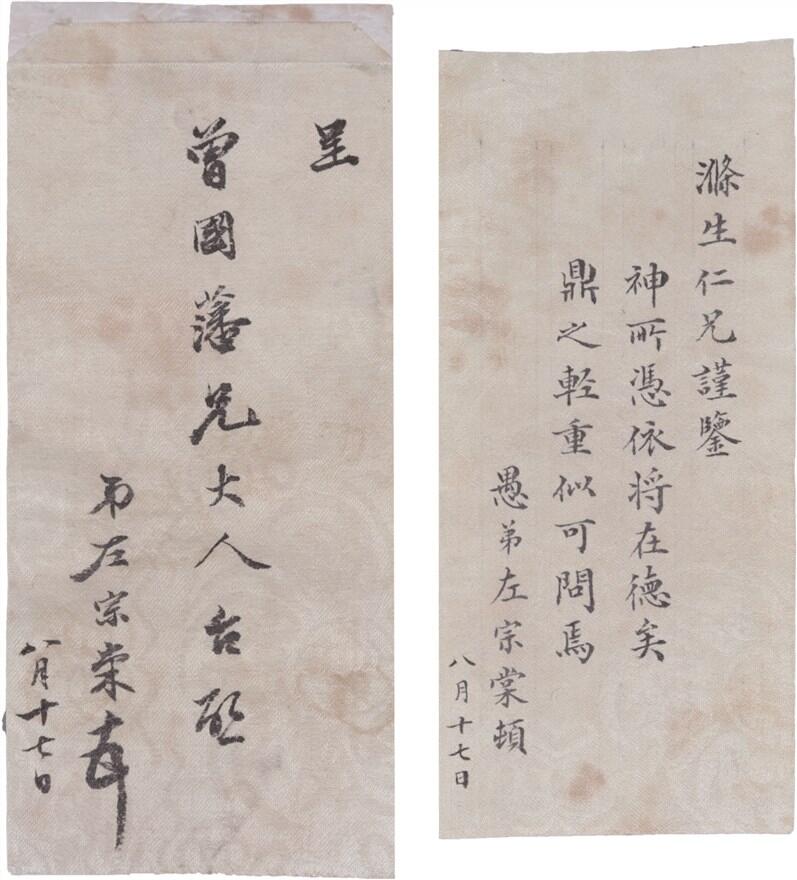 呈
曾國藩兄大人台啟
弟左宗棠
八月十七日
滌生仁兄謹鑒
神所憑依将在德矣
鼎之輕重似可問焉
愚弟左宗棠頓
八月十七日